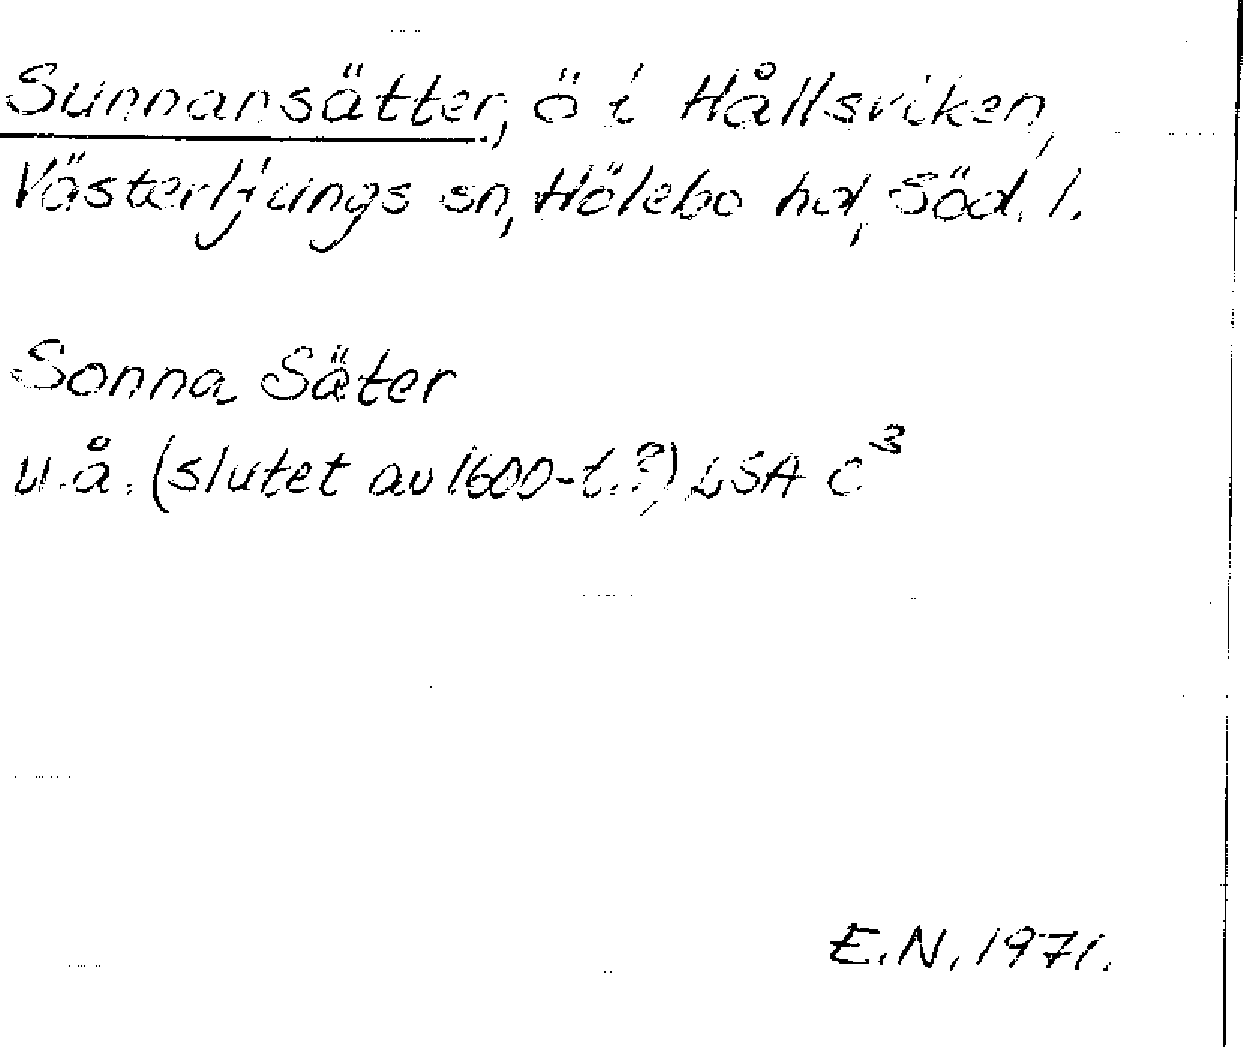 Sunnansätter, ö i Hållsviken,
Västerljungs sn, Hölebo hd, Söd. l.
Sonna Säter
u.å. (slutet av 1600-t.?) LSA C³
E.N. 1971.